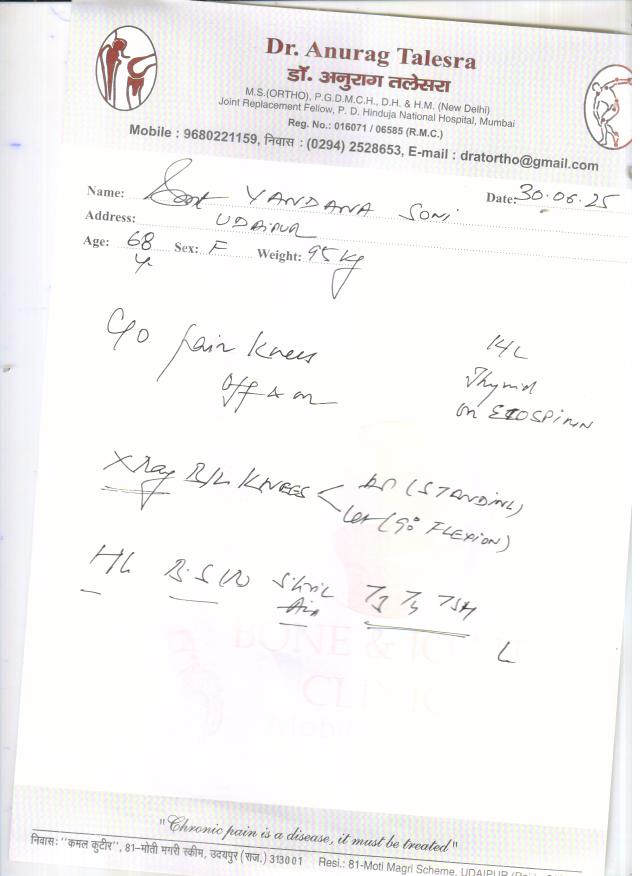 Dr. Anurag Talesra
डॉ. अनुराग तलेसरा
M.S.(ORTHO), P.G.D.M.C.H., D.H. & H.M. (New Delhi)
Joint Replacement Fellow, P. D. Hinduja National Hospital, Mumbai
Reg. No.: 016071 / 06585 (R.M.C.)
Mobile : 9680221159, निवास : (0294) 2528653, E-mail : dratortho@gmail.com
Name: VANDANA SONI Date: 30.06.25
Address: UDAIPUR
Age: 68 y Sex: F Weight: 95 kg
C/o pain Knees
off & on
H/L
Thyroid
on ECOSPIRIN
X Ray B/L KNEES
AP (STANDING)
Lat (90° FLEXION)
T3 T4 TSH
BONE &
"Chronic pain is a disease, it must be treated"
निवास: "कमल कुटीर", 81-मोती मगरी स्कीम, उदयपुर (राज.) 313001 Resi.: 81-Moti Magri Scheme, UDAIPUR